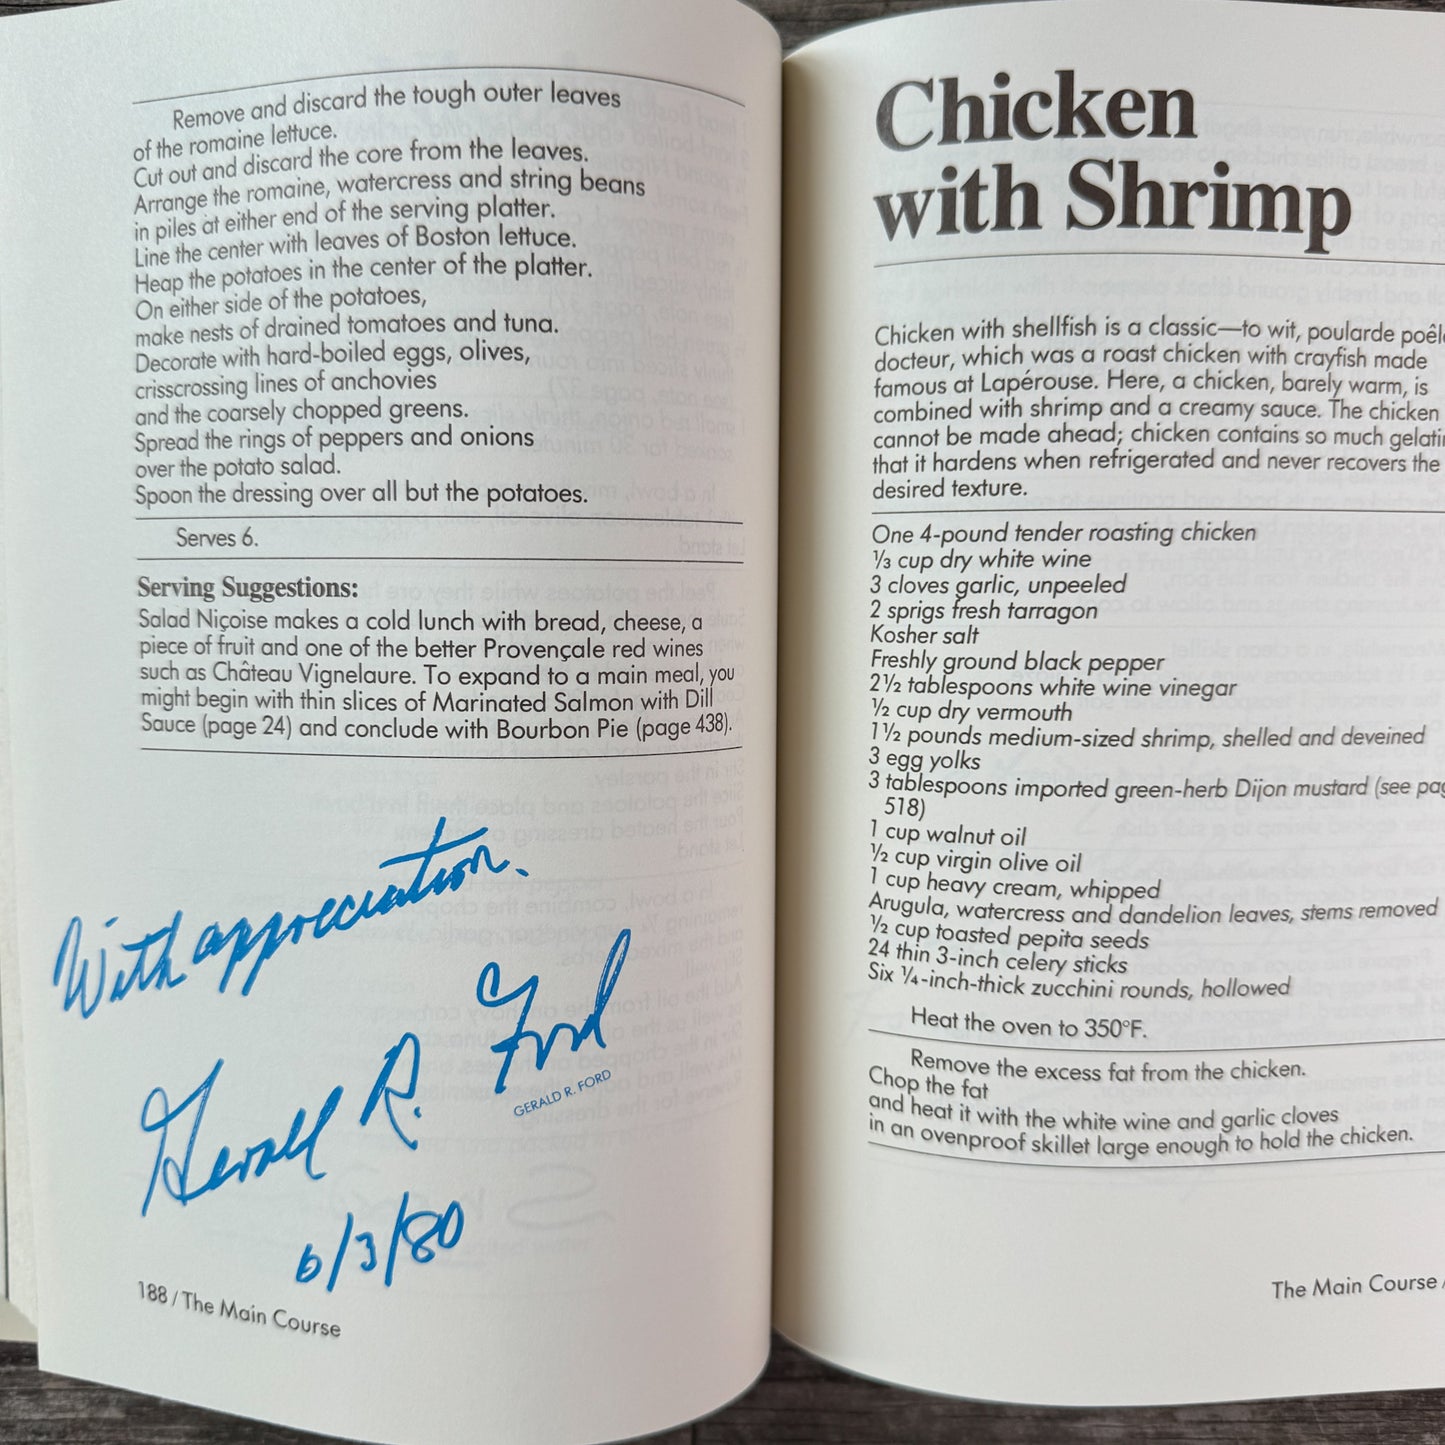 Remove and discard the tough outer leaves
of the romaine lettuce.
Cut out and discard the core from the leaves.
Arrange the romaine, watercress and string beans
in piles at either end of the serving platter.
Line the center with leaves of Boston lettuce.
Heap the potatoes in the center of the platter.
On either side of the potatoes,
make nests of drained tomatoes and tuna.
Decorate with hard-boiled eggs, olives,
crisscrossing lines of anchovies
and the coarsely chopped greens.
Spread the rings of peppers and onions
over the potato salad.
Spoon the dressing over all but the potatoes.
Serves 6.
Serving Suggestions:
Salad Niçoise makes a cold lunch with bread, cheese, a
piece of fruit and one of the better Provençale red wines
such as Château Vignelaure. To expand to a main meal, you
might begin with thin slices of Marinated Salmon with Dill
Sauce (page 24) and conclude with Bourbon Pie (page 438).
With appreciation.
Gerald R. Ford
GERALD R. FORD
6/3/80
188 / The Main Course
Chicken
with Shrimp
Chicken with shellfish is a classic—to wit, poularde
docteur, which was a roast chicken with crayfish made
famous at Lapérouse. Here, a chicken, barely warm, is
combined with shrimp and a creamy sauce. The chicken
cannot be made ahead; chicken contains so much
that it hardens when refrigerated and never recovers the
desired texture.
One 4-pound tender roasting chicken
⅓ cup dry white wine
3 cloves garlic, unpeeled
2 sprigs fresh tarragon
Kosher salt
Freshly ground black pepper
2½ tablespoons white wine vinegar
½ cup dry vermouth
1½ pounds medium-sized shrimp, shelled and deveined
3 egg yolks
3 tablespoons imported green-herb Dijon mustard (see
518)
1 cup walnut oil
½ cup virgin olive oil
1 cup heavy cream, whipped
Arugula, watercress and dandelion leaves, stems removed
½ cup toasted pepita seeds
24 thin 3-inch celery sticks
Six ¼-inch-thick zucchini rounds, hollowed
Heat the oven to 350°F.
Remove the excess fat from the chicken.
Chop the fat
and heat it with the white wine and garlic cloves
in an ovenproof skillet large enough to hold the chicken.
The Main Course /